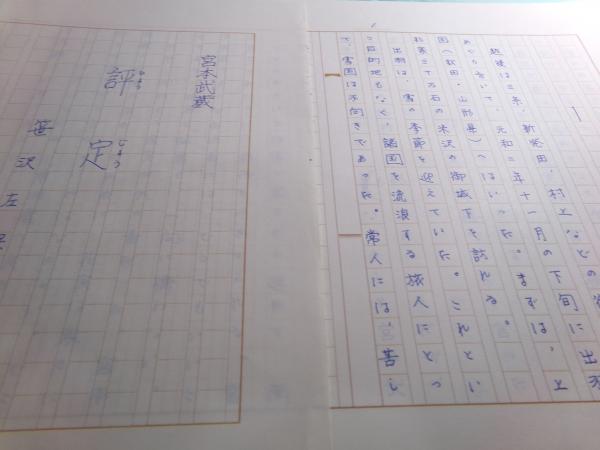 越後は三条、新発田、村上などの
めぐり歩いて、元和二年十一月の下旬に出羽
国(秋田・山形県)へはいった。まずは、上
杉家三十万石の米沢の御城下を訪れる。
出羽は、雪の季節を迎えていた。これとい
う目的地もなく、諸国を流浪する旅人にとっ
て、雪国は不向きであった。常人には、苦し
宮本武蔵
評定
ひょうじょう
笹沢左